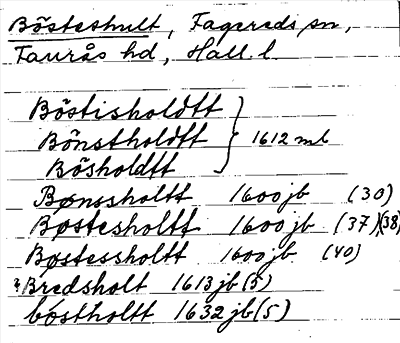 Bösteshult, Fagereds sn,
Faurås hd, Hall. l.
Böstisholdtt
Bönstholdtt } 1612 ml
Bösholdtt
Bønssholtt 1600 jb (30)
Bøstesholtt 1600 jb (37)(38)
Bøstessholtt 1600 jb (40)
? Bredsholt 1613 jb (5)
bóstholtt 1632 jb (5)